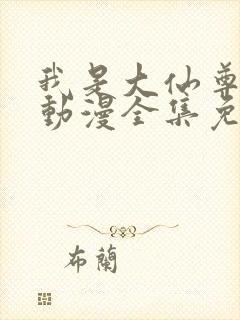 我是大仙尊
動漫全集免
布蘭